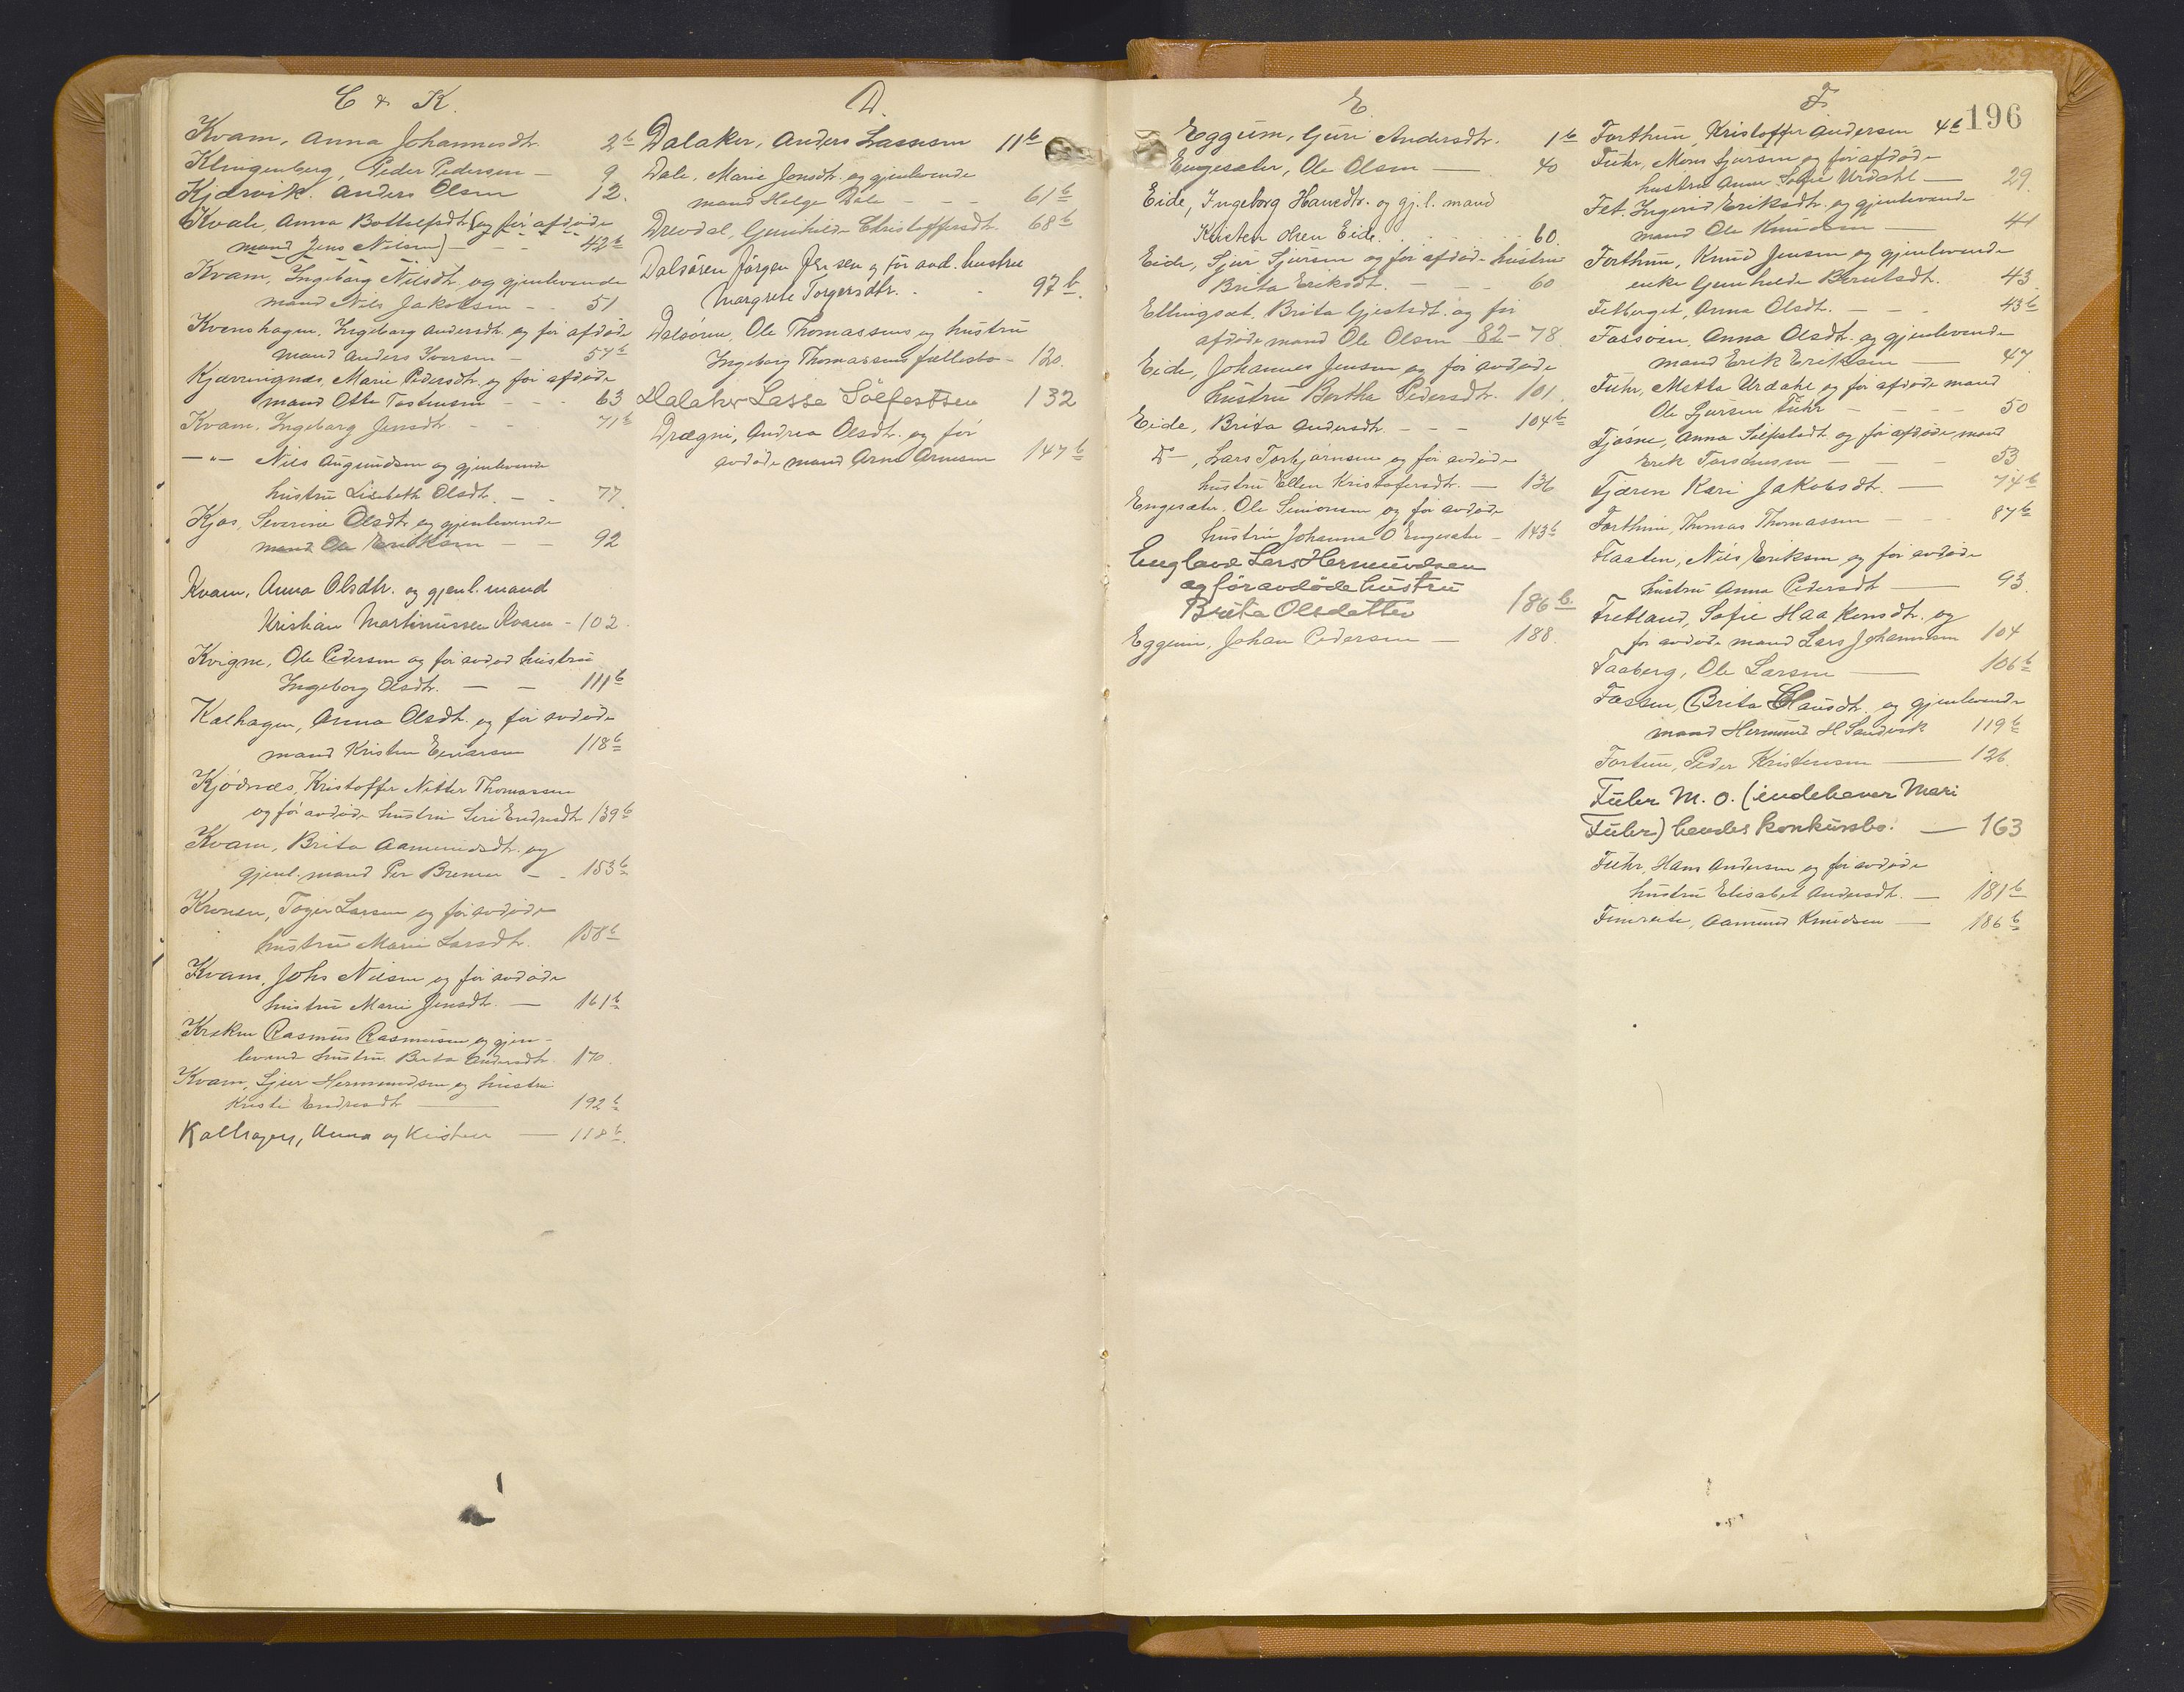 C & K.
Kvam, Anna Johannesdtr. 2b
Klingenberg, Peder Pedersen — 9
Kjærvik, Anders Olsen 12.
Kvale, Anna Bottolfsdtr. (og før afdøde
mand Jens Nilsen) — 42b
Kvam, Ingeborg Nilsdtr. og gjenlevende
mand Nils Jakobsen - - 51
Kvenshagen, Ingeborg Andersdtr. og før afdød
mand Anders Iversen - 57b
Kjærringnes, Marie Pedersdtr. og før afdøde
mand Otto Tostensen - - - 63
Kvam, Ingeborg Jensdtr. - - 71b
—"— Nils Augundsen og gjenlevende
hustru Lisabeth Olsdtr. - - 77.
Kjos, Severine Olsdtr. og gjenlevende
mand Ole Eriksen - - 92
Kvam, Anna Olsdtr. og gjenl. mand
Kristian Martinussen Kvam - 102.
Kvigne, Ole Pedersen og før avdød hustru
Ingeborg Olsdtr. — — 111b
Kalhagen, Anna Olsdtr. og før avdøde
mand Kristen Einarsen 118b
Kjødnæs, Kristoffer Nitter Thomassen
og før avdøde hustru Siri Endresdtr. 139b
Kvam, Brita Aamundsdtr. og
gjenl. mand Per Bremer - - 153b
Kronen, Toger Larsen og før avdøde
hustru Marie Larsdtr. 158b
Kvam, Johs Nilsen og før avdøde
hustru Marie Jensdtr. — 161b
Kroken Rasmus Rasmussen og gjen-
levende hustru Brita Andersdtr. 170.
Kvam, Sjur Hermundsen og hustru
Kristi Endresdtr. — 192b
Kalhagen, Anna og Kristen — 118b.
D.
Dalaker, Anders Lassesen 11b
Dale, Marie Jonsdtr. og gjenlevende
mand Helge Dale - - - 61b
Drevdal, Gunhilde Christoffersdtr. 68b
Dalsøren Jørgen Jensen og før avd. hustru
Margrete Torgersdtr. - - 97b.
Dalsøren, Ole Thomassens og hustru
Ingeborg Thomassens fællesbo - 120.
Dalaker Lasse Sølfestsen 132
Drægni, Andrea Olsdtr. og før
avdøde mand Arne Arnesen 147b
E.
Eggum, Guri Andersdtr. 1b
Engesæter, Ole Olsen — 40
Eide, Ingeborg Hansdtr. og gj. l. mand
Kristen Olsen Eide. 60.
Eide, Sjur Sjursen og før afdøde hustru
Brita Eriksdtr. - - - 60
Ellingsæt, Brita Gjestsdtr. og før
afdøde mand Ole Olsen 82-78.
Eide, Johannes Jensen og før avdøde
hustru Bertha Pedersdtr. 101.
Eide, Brita Andersdtr. - - - 104b
Do —, Lars Torbjørnsen og før avdøde
hustru Ellen Kristofersdtr. — 136
Engesæter, Ole Simonsen og før avdøde
hustru Johanna O Engesæter - 143b
England Lars Hermundsen
og før avdöde hustru
Brita Olsdatter 186b.
Eggum, Johan Pedersen — 188.
F.
196
Forthun, Kristoffer Andersen 4b
Fuhr, Mons Sjursen og før afdøde
hustru Anne Sofie Urdahl — 29.
Fet, Ingerid Eriksdtr. og gjenlevende
mand Ole Knudsen — 41
Forthun, Knud Jensen og gjenlevende
enke Gunhilde Berntsdtr. 43.
Fetberget, Anna Olsdtr. - - - 43b
Fossøien, Anna Olsdtr. og gjenlevende
mand Erik Eriksen — 47
Fuhr, Metta Urdahl og før afdøde mand
Ole Sjursen Fuhr - - - - 50
Fjøsne, Anna Sølfestsdtr. og før afdøde mand
Erik Torstensen — — - 53
Fjæren Kari Jakobsdtr. — 74b
Forthun, Thomas Thomassen - - - 87b
Flaaten, Nils Eriksen og før avdøde
hustru Anna Pedersdtr. — 93.
Fretland, Sofie Haakensdtr. og
før avdøde mand Lars Johannesen 104
Faaberg, Ole Larsen — 106b
Fossen, Brita Hansdtr. og gjenlevende
mand Hermund H Sandvik 119b
Fortun, Peder Kristensen — 126.
Fuhr M. O. (indehaver Mari
Fuhr) hendes konkursbo. — 163
Fuhr, Hans Andersen og før avdøde
hustru Elisabet Andersdtr. — 181b
Fimreite, Aamund Knudsen — 186b